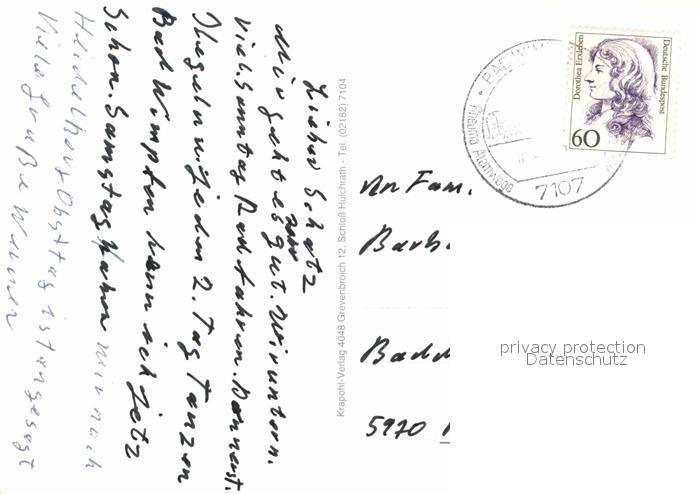 Lieber Schatz
Mir geht es gut. Wir untern.
nur
Viel. Sonntag Radfahren. Donnerst.
Kegeln u. Jeden 2. Tag Tanzen
Bad Wimpfen kenn ich Jetz
Schon. Samstag fahren wir nach
Heidelberg Obsttag ist angesagt
Viele Grüße Werner
Krapohl-Verlag 4048 Grevenbroich 12, Schloß Hülchrath - Tel. (02182) 7104
BAD WIM
7107
Dorothea Erxleben
Deutsche Bundespost
60
An Fam.
Barb.
5970
privacy protection
Datenschutz